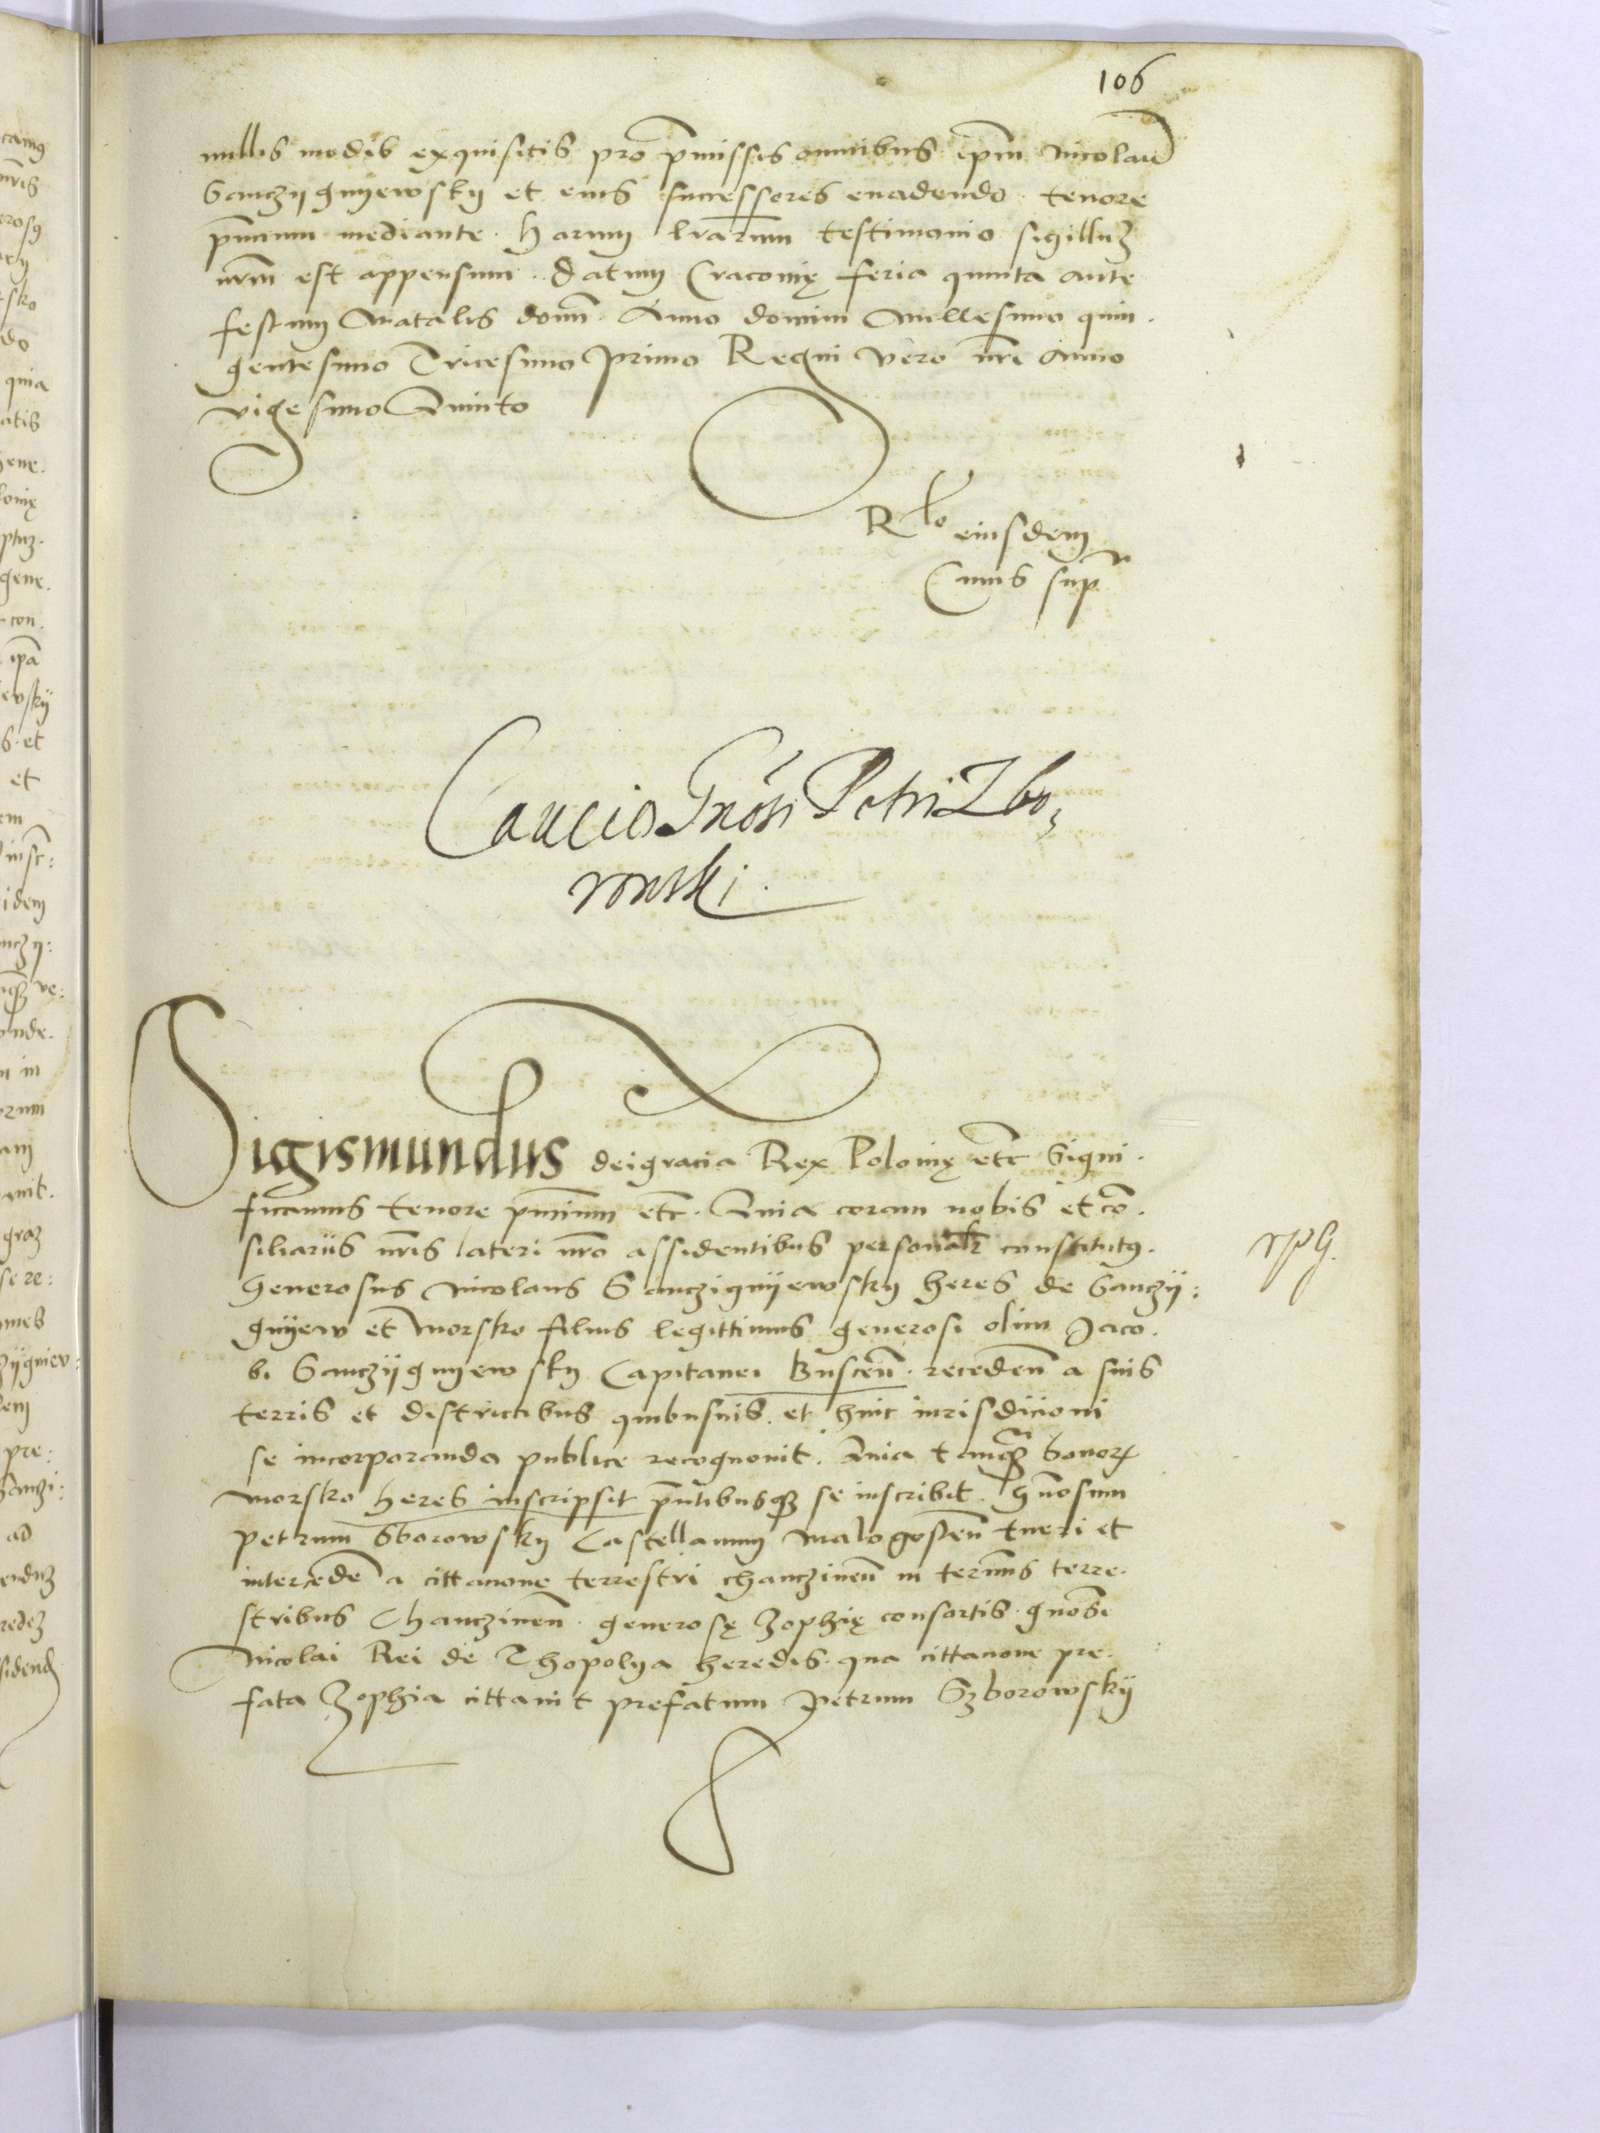 106
nullis modis exquisitis pro p̄missis omnibus ip̄m Nicolaū
Sanczÿgnÿewskÿ et eius successores euadendo tenore
p̄ntium mediante. Harum l̄rarum testimonio sigilluȝ
nr̄m est appensum. Datum Cracovię feria quinta ante
festum Natalis domī. Anno domini Millesimo quin.
gentesimo Tricesimo Primo Regni vero nr̄i Anno
vigesimo Quinto
Rlo eiusdem
Cuius sup̄
Caucio Gnōsi Petri Zbo,
rowski.
Sigismundus deigracia Rex Polonię etc̄ Signi.
ficamus tenore p̄ntium etc̄. Quia coram nobis et cō.
siliarÿs nr̄is lateri nr̄o assidentibus personalr̄ constitutꝰ.
Generosus Nicolaus Sanczignÿewskÿ heres de Sanczÿ:
gnÿew et Morsko filius legittimus generosi olim Jaco.
bi Sanczÿgnyewskÿ Capitanei Buscēn. recedeñ a suis
terris et districtibus quibusuis et huic iurisdicioni
se incorporando publice recognouit. Quia tamqȝ bonoꝝ
Morsko heres inscripsit p̄ntibusqȝ se inscribit. Gn̄osum
Petrum Sborowskÿ Castellanum Malogosteñ tueri et
intercedē a cittacione terrestri Chanczineñ in terminis terre.
stribus Chanczineñ. generosę Zophię consortis gnōsi
Nicolai Rei de Thopolya heredis. qua cittacione pre.
fata Zophia cittauit prefatum Petrum Szborowskÿ